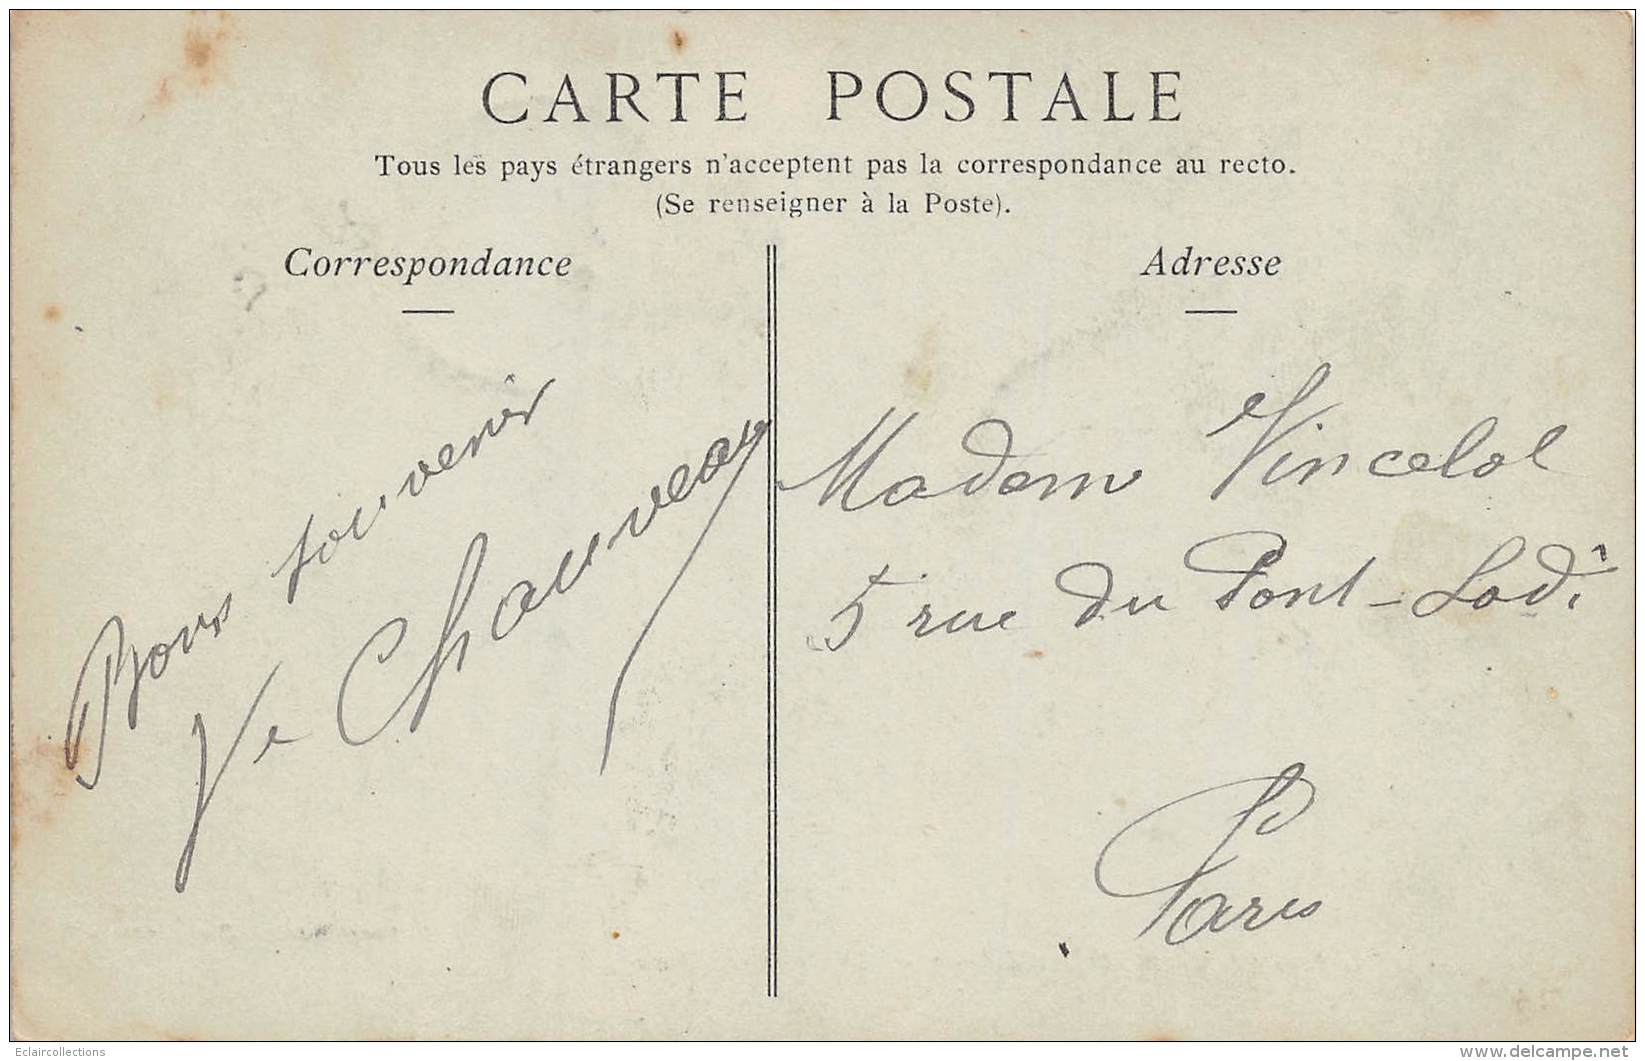 CARTE POSTALE
Tous les pays étrangers n'acceptent pas la correspondance au recto.
(Se renseigner à la Poste).
Correspondance
Bons souvenir
Chauveau
Adresse
Madam Vincelot
5 rue du Pont-Lodi
Paris
Eclaircollections
www.delcampe.net